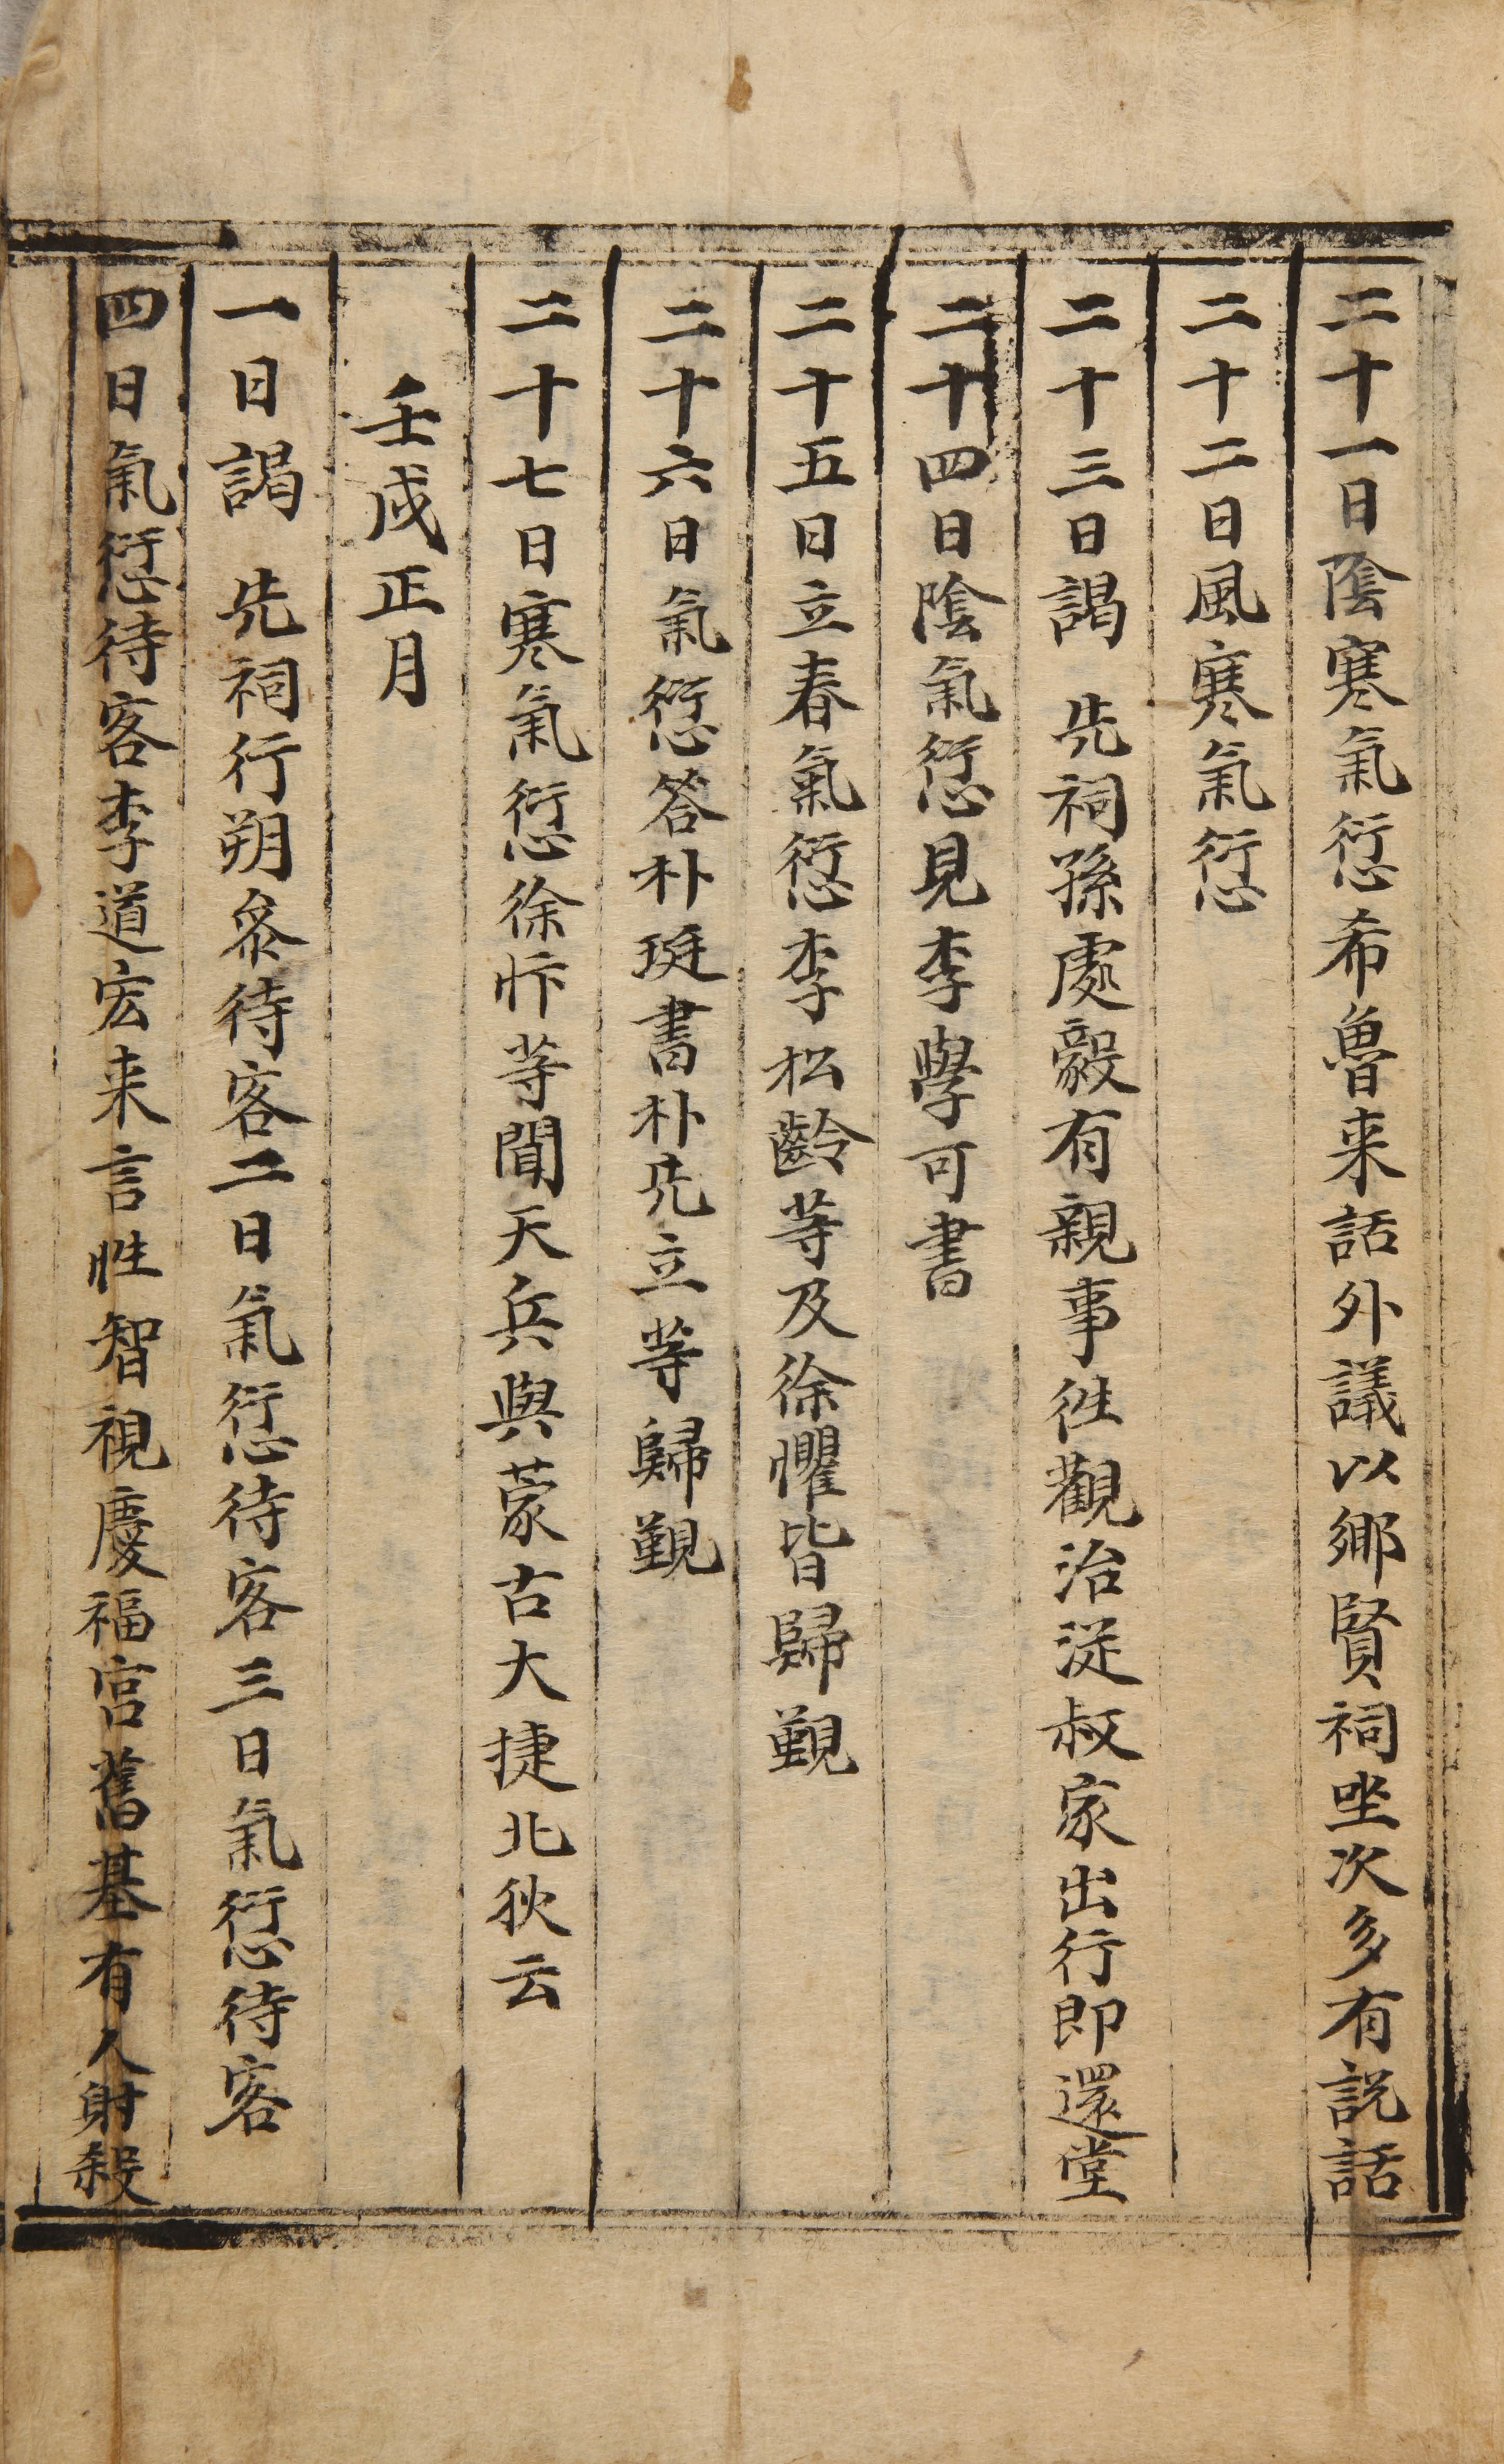 二十一日陰寒氣愆希魯来話外議以鄕賢祠坐次多有説話
二十二日風寒氣愆
二十三日謁 先祠孫處毅有親事徃觀治從叔家出行即還堂
二十四日陰氣愆見李學可書
二十五日立春氣愆李松齡䓁及徐懼皆歸覲
二十六日氣愆答朴珽書朴先立䓁歸覲
二十七日寒氣愆徐忭䓁聞天兵與蒙古大捷北狄云
壬戌正月
一日謁 先祠行朔叅待客二日氣愆待客三日氣愆待客
四日氣愆待客李道宏来言性智視慶福宮舊基有人射殺